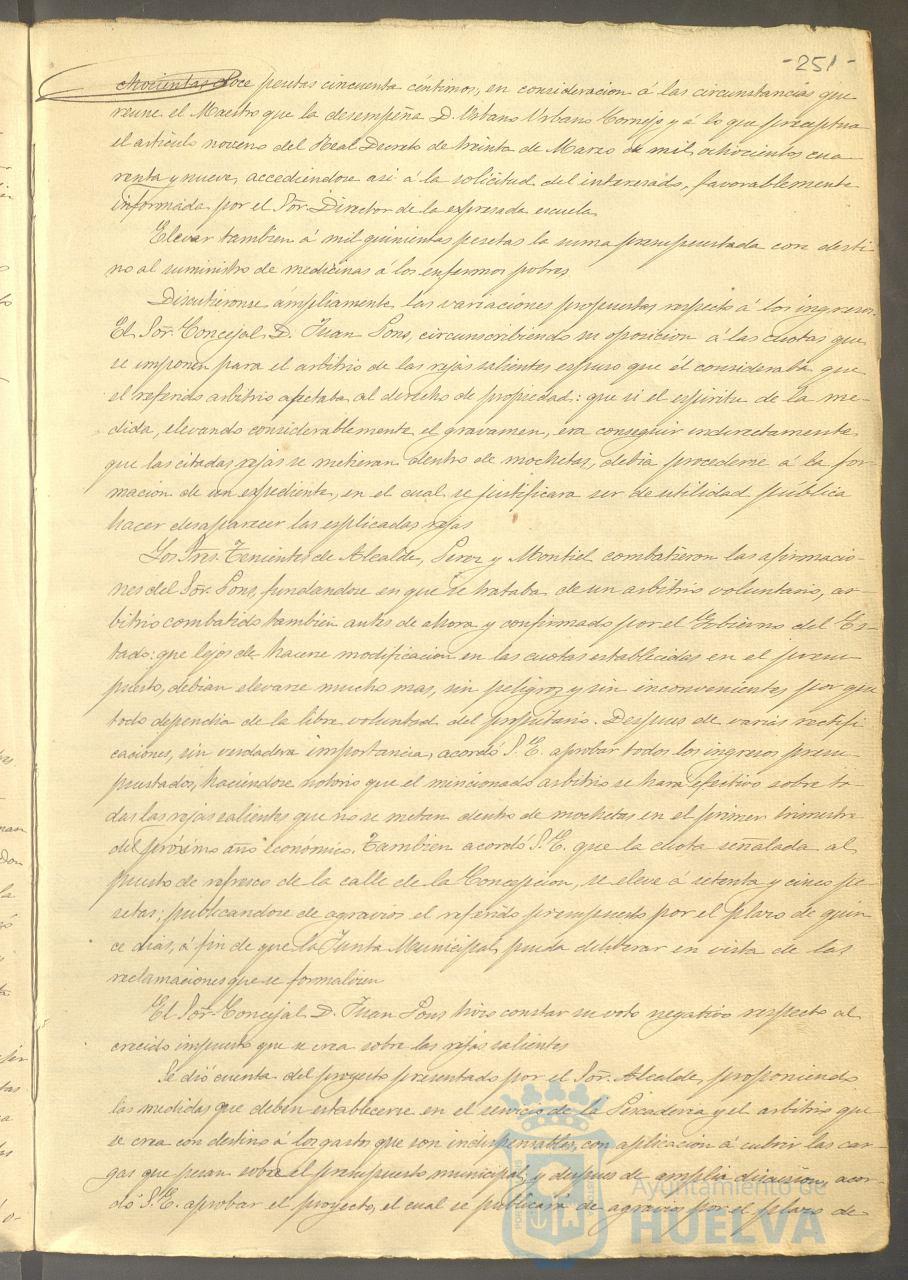 -251-
ochocientas doce pesetas cincuenta céntimos, en consideracion á las circunstancias que
reune el Maestro que la desempeña D. Urbano Urbano Cornejo y á lo que preceptua
el articulo noveno del Real Decreto de treinta de Marzo de mil ochocientos cua
renta y nueve, accediendose asi á la solicitud del interesado, favorablemente
informada por el Sor. Director de la expresada escuela
Elevar tambien á mil quinientas pesetas la suma presupuestada con desti
no al suministro de medicinas á los enfermos pobres
Discutieronse ámpliamente las variaciones propuestas respecto á los ingresos.
El Sor. Concejal D. Juan Pons, circunscribiendo su oposicion á las cuotas que
se imponen para el arbitrio de las rejas salientes espuso que él consideraba que
el referido arbitrio afectaba al derecho de propiedad: que si el espiritu de la me-
dida, elevando considerablemente el gravamen, era conseguir indirectamente
que las citadas rejas se metieran dentro de mochetas, debia procederse á la for-
macion de un expediente, en el cual se justificara ser de utilidad pública
hacer desaparecer las esplicadas rejas
Los Sres. Tenientes de Alcalde, Perez y Montiel combatieron las afirmacio-
nes del Sor. Pons, fundandose en que se trataba de un arbitrio voluntario, ar-
bitrio combatido tambien antes de ahora y confirmado por el Gobierno del Es-
tado: que lejos de hacerse modificacion en las cuotas establecidas en el presu-
puesto, debian elevarse mucho mas, sin peligros y sin inconvenientes por que
todo dependia de la libre voluntad del propietario. Despues de varias rectifi
caciones, sin verdadera importancia, acordó S. E. aprobar todos los ingresos presu-
puestados, haciendose notorio que el mencionado arbitrio se hará efectivo sobre to-
das las rejas salientes que no se metan dentro de mochetas en el primer trimestre
del próximo año económico. Tambien acordó S. E. que la cuota señalada al
puesto de refresco de la calle de la Concepcion, se eleve á setenta y cinco pe-
setas; publicandose de agravios el referido presupuesto por el plazo de quin
ce dias, á fin de que la Junta Municipal pueda deliberar en vista de las
reclamaciones que se formalicen
El Sor. Concejal D. Juan Pons hizo constar su voto negativo respecto al
crecido impuesto que se crea sobre las rejas salientes
Se dió cuenta del proyecto presentado por el Sor. Alcalde, proponiendo
las medidas que deben establecerse en el servicio de la Pescaderia y el arbitrio que
se crea con destino á los gastos que son indispensables, con aplicacion á cubrir las car-
gas que pesan sobre el presupuesto municipal, y despues de amplia discusion, acor-
dó S. E. aprobar el proyecto, el cual se publicará de agravios por el plazo de
Ayuntamiento de
HUELVA